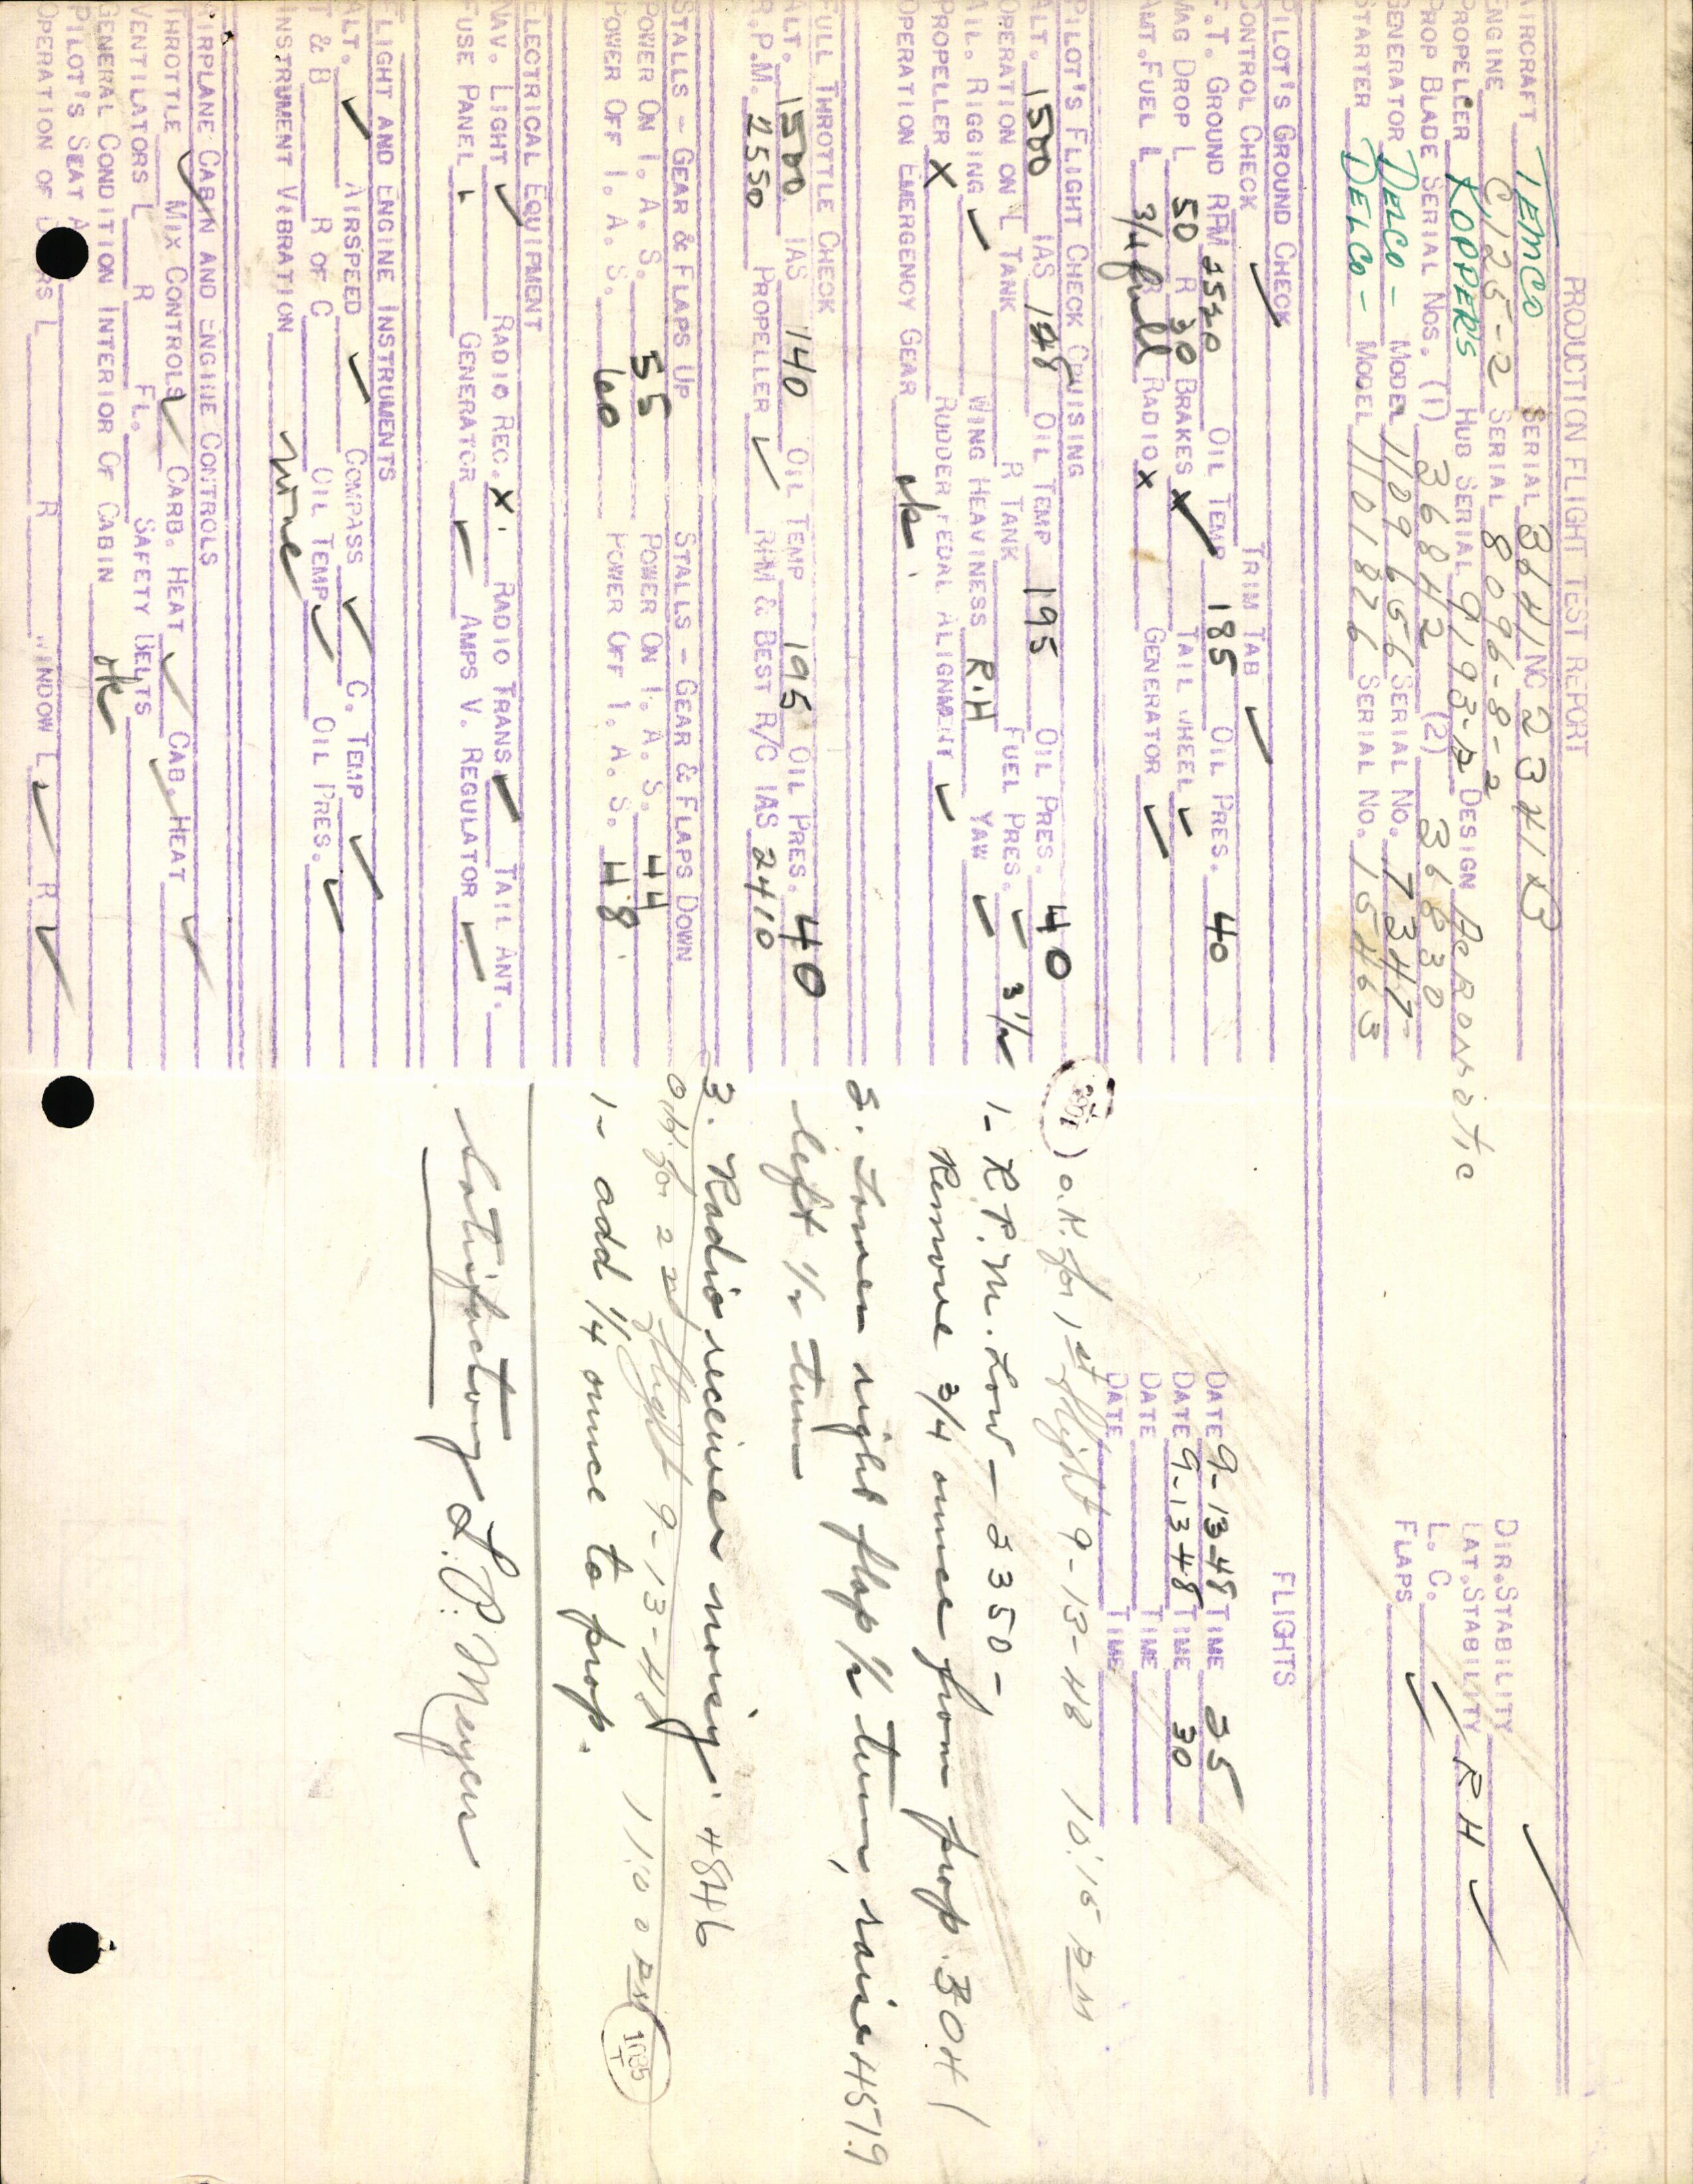 PRODUCTION FLIGHT TEST REPORT
AIRCRAFT TEMCO SERIAL 3641 NC 2341B
ENGINE C125-2 SERIAL 8096-8-2 DIR. STABILITY
PROPELLER KOPPERS HUB SERIAL 9193-2 DESIGN Aeromatic LAT. STABILITY RH ✓
PROP BLADE SERIAL NOS. (1) 36842 (2) 36830 L. C. ✓
GENERATOR DELCO - MODEL 1109656 SERIAL NO. 17347 FLAPS ✓
STARTER DELCO - MODEL 1101826 SERIAL NO. 15463
PILOT'S GROUND CHECK ✓ FLIGHTS
CONTROL CHECK TRIM TAB ✓
F.T. GROUND RPM OIL TEMP 185 OIL PRES. 40 DATE 9-13-48 TIME 25
MAG DROP L 50 R 30 BRAKES X ✓ TAIL WHEEL ✓ DATE 9-13-48 TIME 30
AMT. FUEL L 3/4 R full RADIO X GENERATOR ✓ DATE TIME
DATE TIME
PILOT'S FLIGHT CHECK CRUISING
ALT. 1500 IAS 128 OIL TEMP 195 OIL PRES. 40 O.K. for 1st flight 9-13-48 10:15
OPERATION ON L TANK R TANK FUEL PRES. ✓ 3 1/2
AIL. RIGGING ✓ WING HEAVINESS R.H YAW ✓ 1- R.P.M. Low - 2350 -
PROPELLER X RUDDER PEDAL ALIGNMENT ✓ Remove 3/4 ounce from prop. 3041
OPERATION EMERGENCY GEAR ok.
FULL THROTTLE CHECK 2. Lower right flap 1/2 turn, raise 4579
ALT. 1500 IAS 140 OIL TEMP 195 OIL PRES. 40 left 1/2 turn
R.P.M. 2550 PROPELLER ✓ RPM & BEST R/C IAS 2410
3. Radio receiver noisy. 4846
STALLS - GEAR & FLAPS UP STALLS - GEAR & FLAPS DOWN
POWER ON I. A. S. 55 POWER ON I. A. S. 44 O.K. for 2nd flight 9-13-48 1:10
POWER OFF I. A. S. 60 POWER OFF I. A. S. 48 1- add 1/4 ounce to prop.
ELECTRICAL EQUIPMENT
NAV. LIGHT ✓ RADIO REC. X RADIO TRANS ✓ TAIL ANT.
FUSE PANEL ✓ GENERATOR ✓ AMPS V. REGULATOR ✓ Satisfactory L.P. Meyers
FLIGHT AND ENGINE INSTRUMENTS
ALT. ✓ AIRSPEED ✓ COMPASS ✓ C. TEMP ✓
T & B R OF C OIL TEMP ✓ OIL PRES. ✓
INSTRUMENT VIBRATION none
AIRPLANE CABIN AND ENGINE CONTROLS
THROTTLE ✓ MIX CONTROLS ✓ CARB. HEAT ✓ CAB. HEAT ✓
VENTILATORS L R FL. SAFETY BELTS
GENERAL CONDITION INTERIOR OF CABIN ok
PILOT'S SEAT
OPERATION OF L R WINDOW L ✓ R ✓